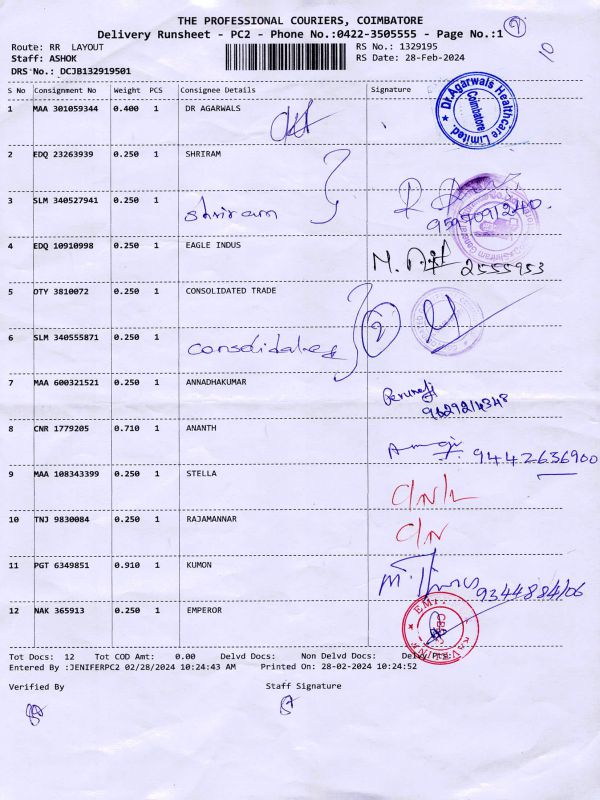 THE PROFESSIONAL COURIERS, COIMBATORE
Delivery Runsheet - PC2 - Phone No.:0422-3505555 - Page No.:1
10
Route: RR LAYOUT RS No.: 1329195
Staff: ASHOK RS Date: 28-Feb-2024
DRS No.: DCJB132919501
S No Consignment No Weight PCS Consignee Details Signature
1 MAA 301059344 0.400 1 DR AGARWALS
Dr.Agarwals Healthcare Limited. Coimbatore
2 EDQ 23263939 0.250 1 SHRIRAM
3 SLM 340527941 0.250 1
Shriram
4 EDQ 10910998 0.250 1 EAGLE INDUS
2555953
5 OTY 3810072 0.250 1 CONSOLIDATED TRADE
2
6 SLM 340555871 0.250 1
7 MAA 600321521 0.250 1 ANNADHAKUMAR
8 CNR 1779205 0.710 1 ANANTH
9442636900
9 MAA 108343399 0.250 1 STELLA
C/N/L
10 TNJ 9830084 0.250 1 RAJAMANNAR
C/N
11 PGT 6349851 0.910 1 KUMON
12 NAK 365913 0.250 1 EMPEROR
Tot Docs: 12 Tot COD Amt: 0.00 Delvd Docs: Non Delvd Docs:
Entered By :JENIFERPC2 02/28/2024 10:24:43 AM Printed On: 28-02-2024 10:24:52
Verified By Staff Signature